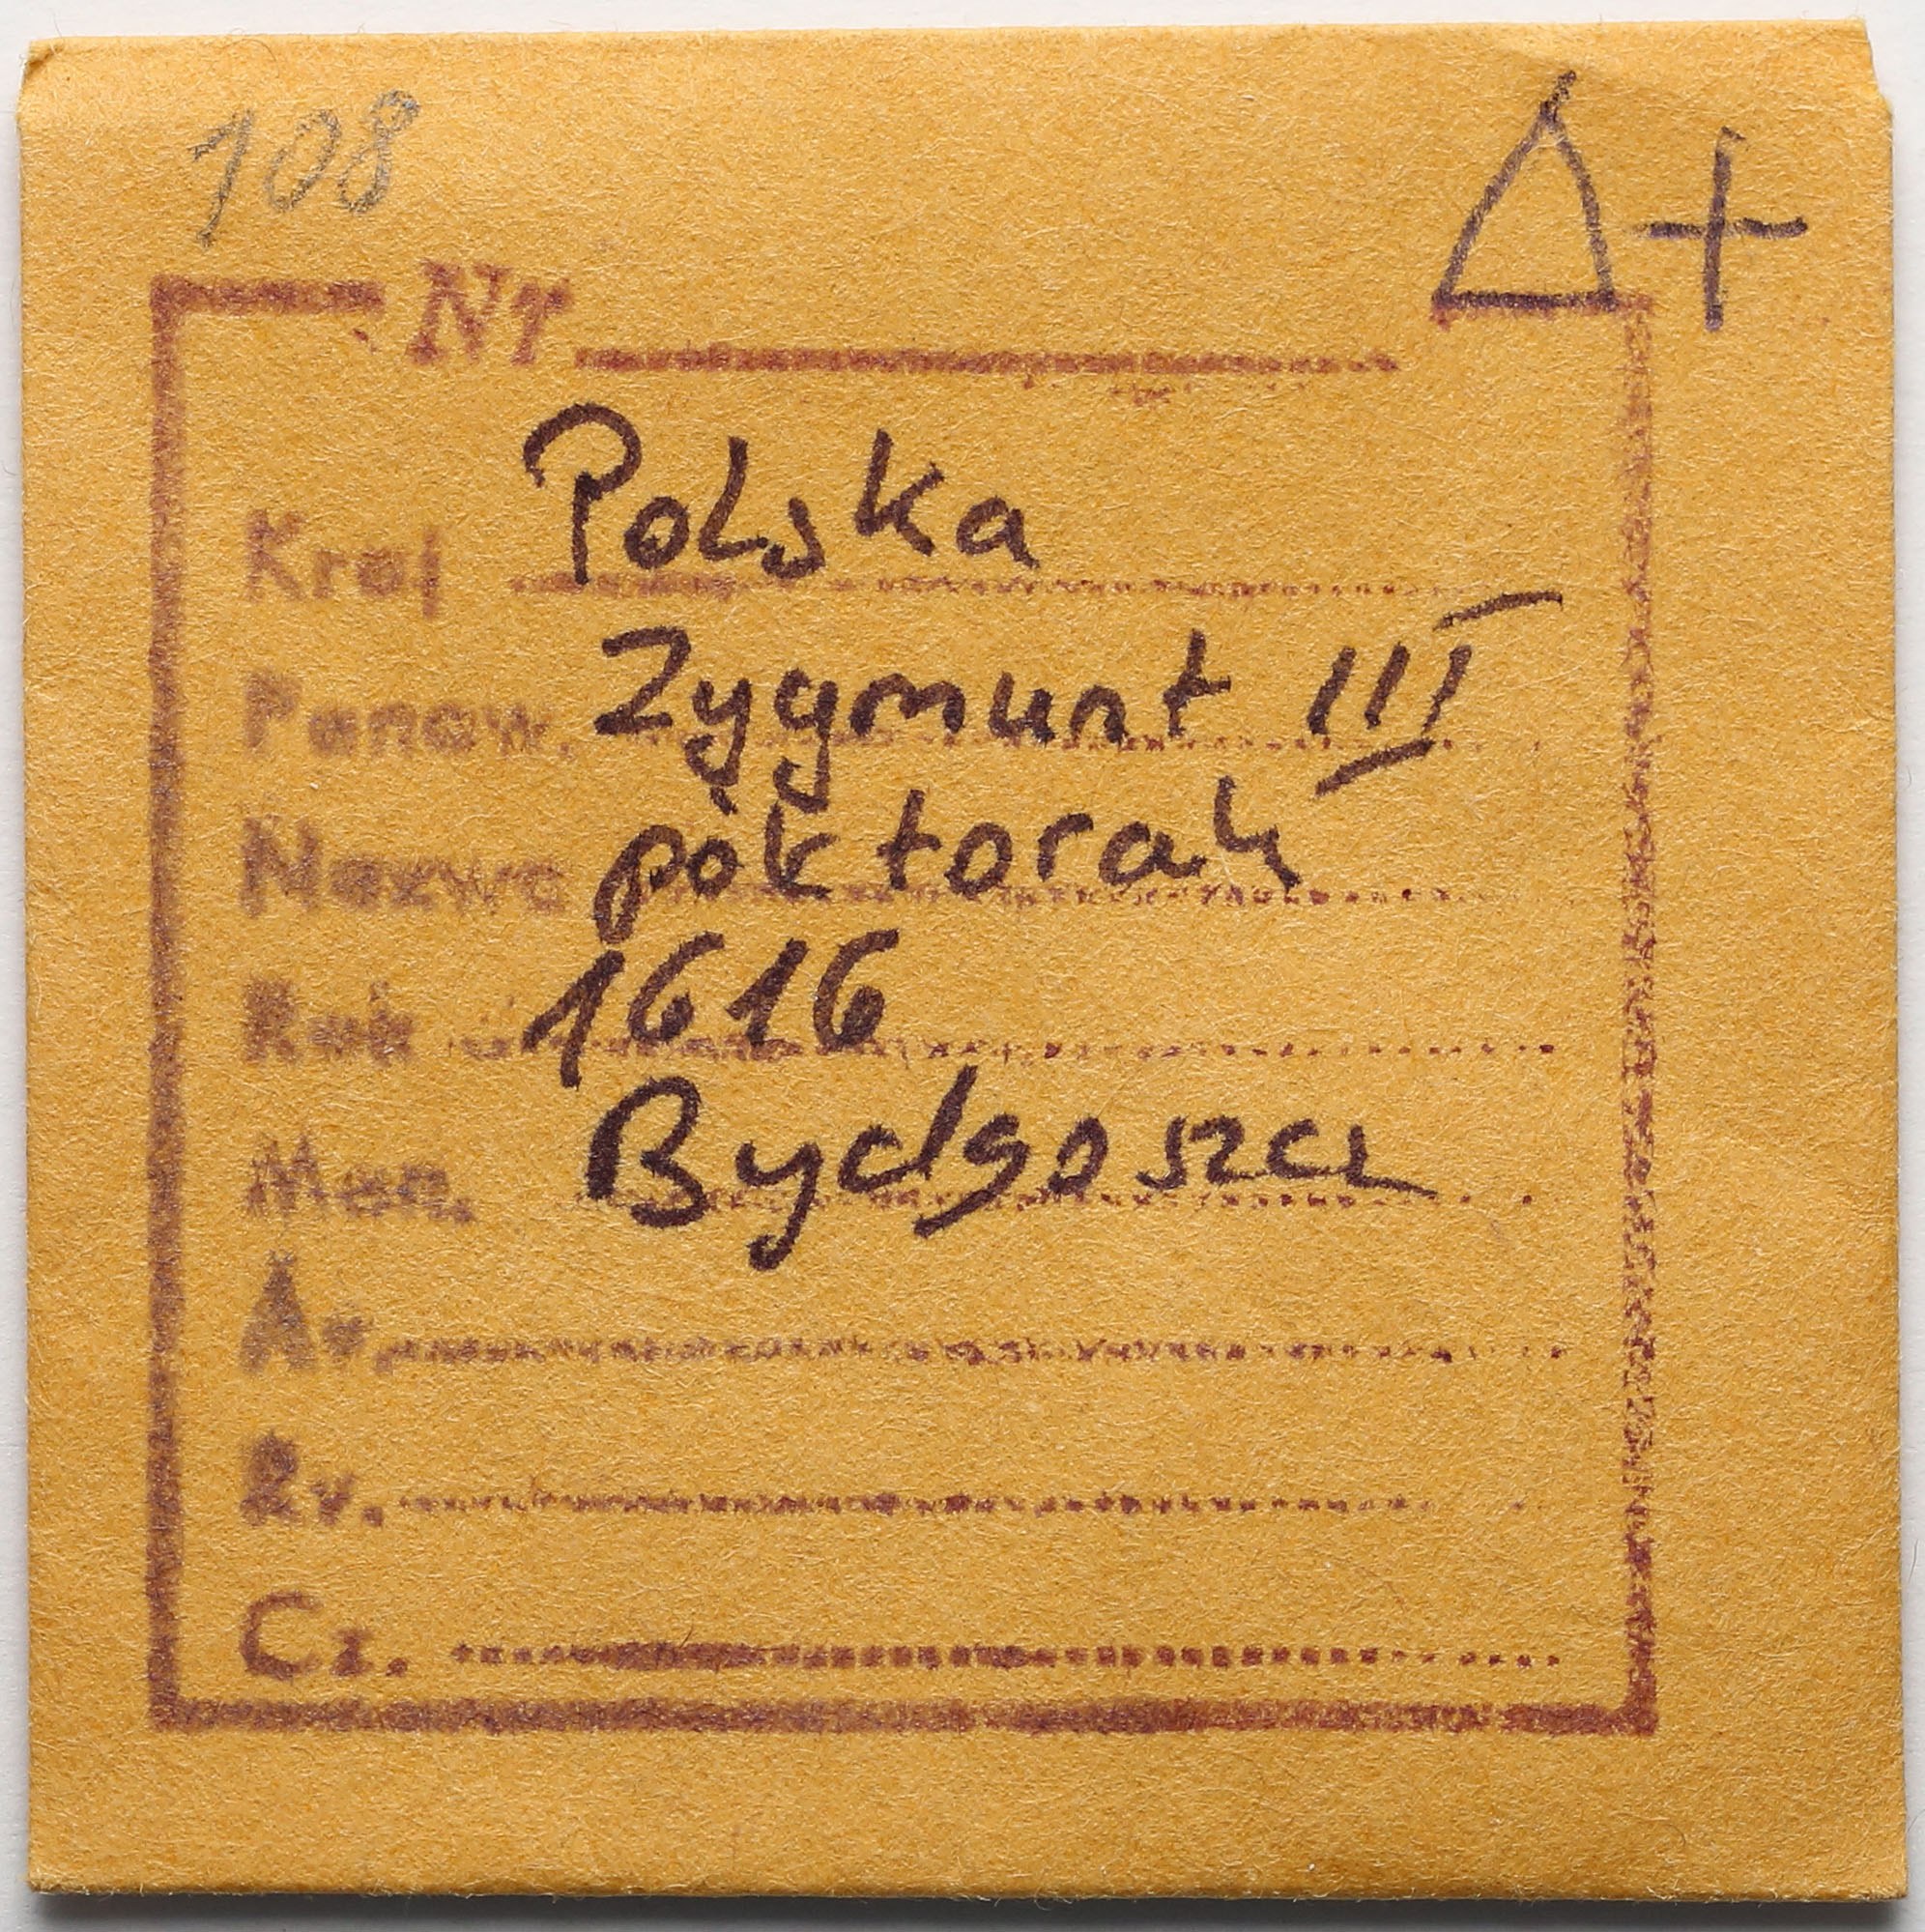 108
Δ+
Nr
Kraj Polska
Panow. Zygmunt III
Nazwa półtorak
Rok 1616
Men. Bydgoszcz
Av.
Rv.
Cz.